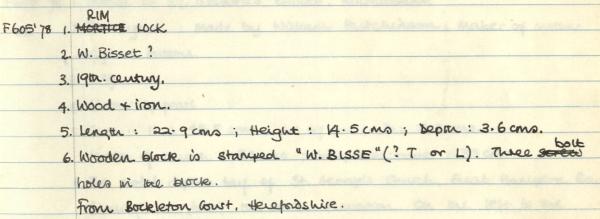 RIM
F605'78 1. MORTICE LOCK
2. W. Bisset?
3. 19th. century.
4. Wood + iron.
5. Length : 22.9 cms ; Height : 14.5 cms ; Depth : 3.6 cms.
bolt
6. Wooden block is stamped "W. BISSE" (? T or L). Three screw
holes in the block.
From Bockleton Court, Herefordshire.